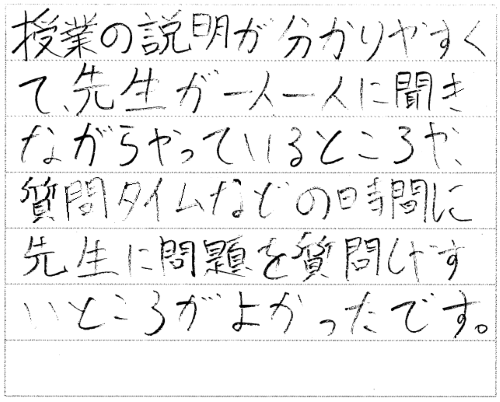 授業の説明が分かりやすく
て、先生が一人一人に聞き
ながらやっているところや、
質問タイムなどの時間に
先生に問題を質問しやす
いところがよかったです。